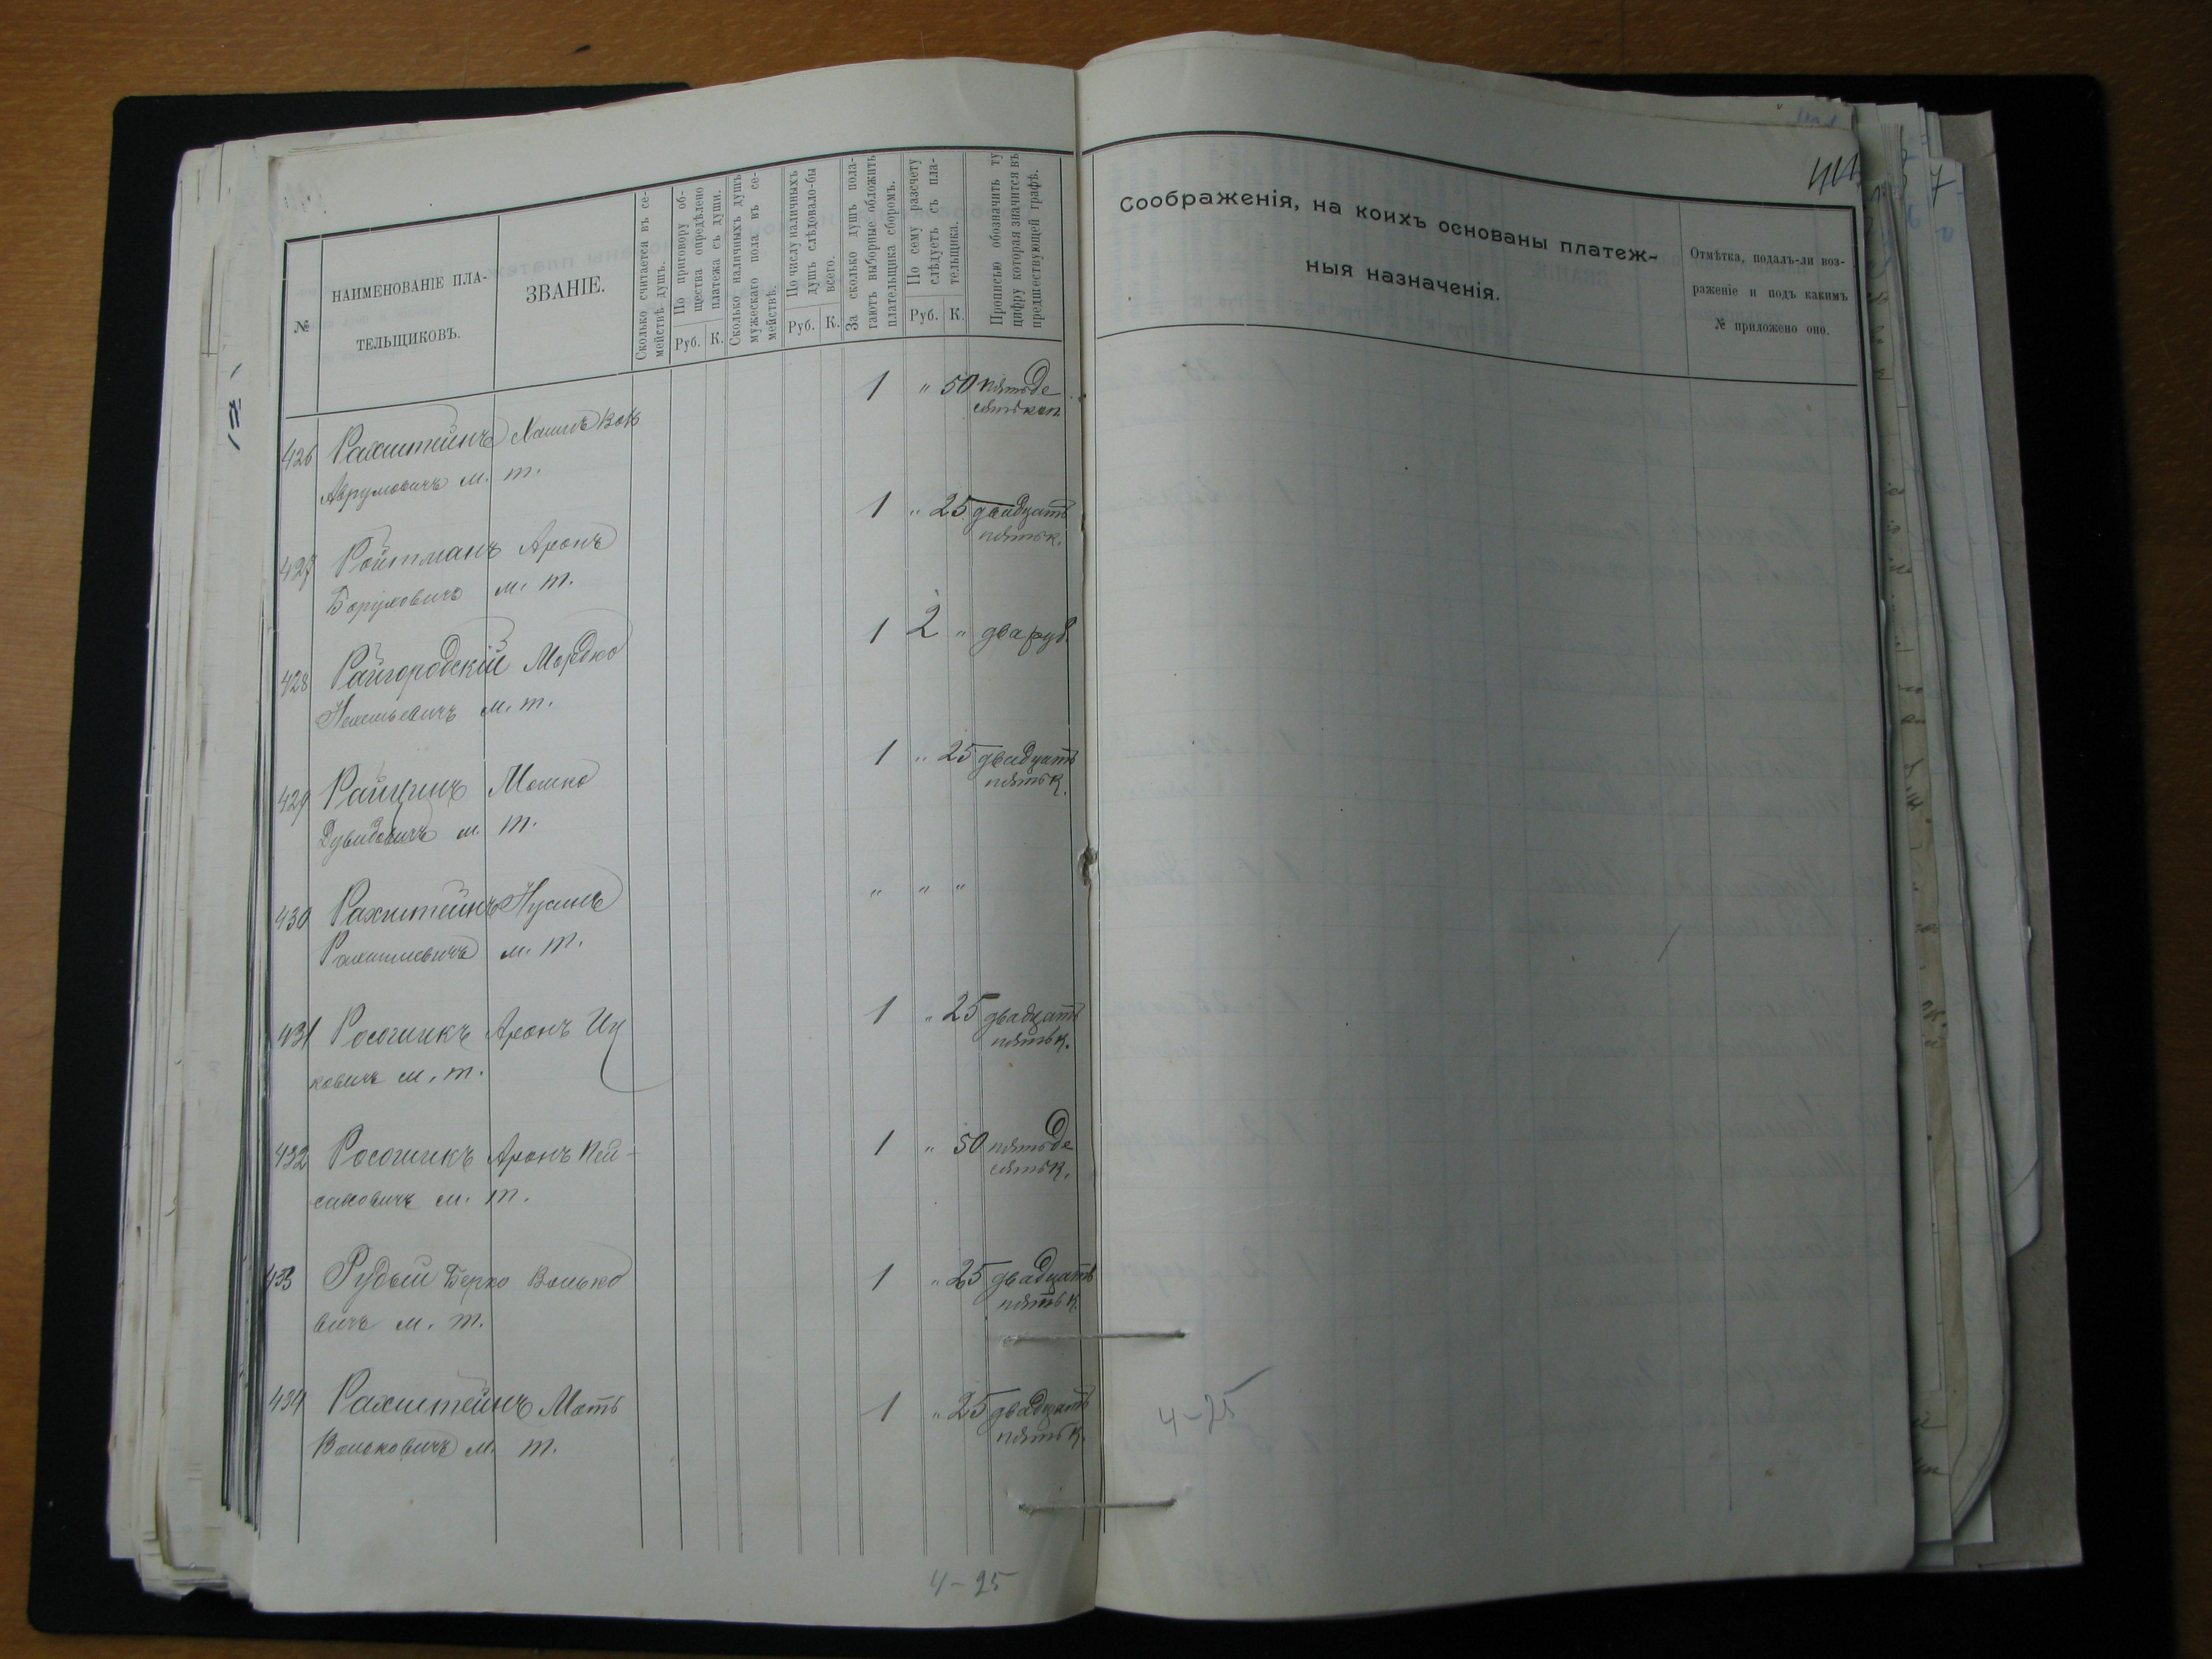 №
НАИМЕНОВАНІЕ ПЛА-
ТЕЛЬЩИКОВЪ.
ЗВАНІЕ.
Сколько считается въ се-
мействѣ душъ.
По приговору об-
щества опредѣлено
платежа съ души.
Руб. К.
Сколько наличныхъ душъ
мужескаго пола въ се-
мействѣ.
По числу наличныхъ
душъ слѣдовало-бы
всего.
Руб. К.
За сколько душъ пола-
гаютъ выборные обложить
плательщика сборомъ.
По сему разсчету
слѣдуетъ съ пла-
тельщика.
Руб. К.
Прописью обозначить ту
цифру которая значится въ
предшествующей графѣ.
426 Рахштейнъ
Аврумовичъ м. т.
1 " 50 пятьде
сятъ коп.
427 Ройтманъ Аронъ
Боруховичъ м. т.
1 " 25 двадцать
пять к.
428 Райгородскій Мордко
м. т.
1 2 " два руб.
429 Райцинъ Мошко
Дувидовичъ м. т.
1 " 25 двадцать
пять к.
430 Рахштейнъ Нусинъ
м. т.
" " "
431 Росошикъ Аронъ Иц
ковичъ м. т.
1 " 25 двадцать
пять к.
432 Росошикъ Аронъ Пей-
саховичъ м. т.
1 " 50 пятьде
сятъ к.
433 Рудый Берко Волько
вичъ м. т.
1 " 25 двадцать
пять к.
434 Рахштейнъ Моть
Вольковичъ м. т.
1 " 25 двадцать
пять к.
4-25
Соображенія, на коихъ основаны платеж-
ныя назначенія.
Отмѣтка, подалъ-ли воз-
раженіе и подъ какимъ
№ приложено оно.
4-25